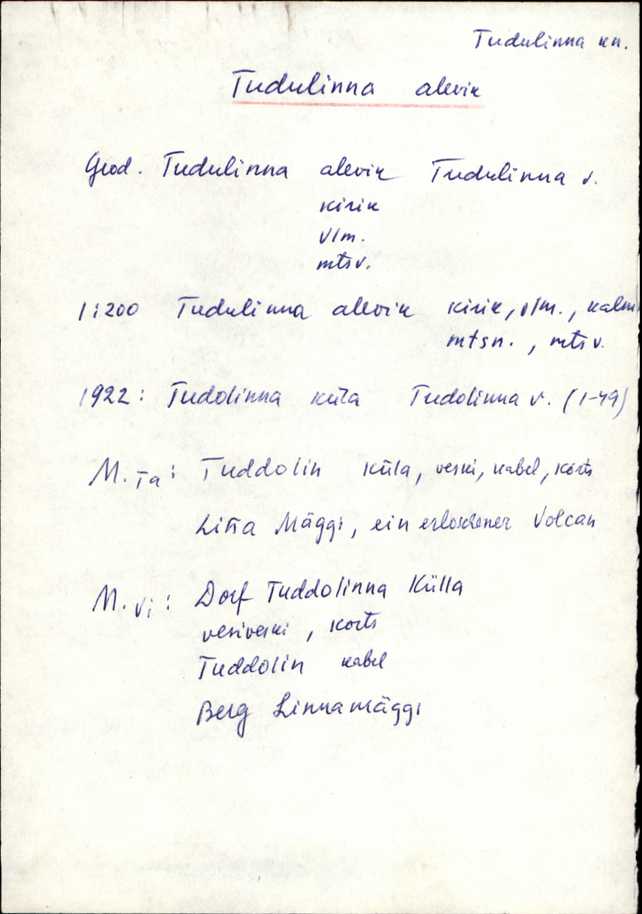 Tudulinna kn.
Tudulinna alevik
Geod. Tudulinna alevik Tudulinna v.
kirik
vlm.
mtsv.
1:200 Tudulinna alevik kirik, vlm., kalm
mtsn., mtsv.
1922: Tudolinna küla Tudolinna v. (1-49)
M. Ta: Tuddolin küla, veski, kabel, körts
Liña Mäggi, ein erloschener Volcan
M. Vi: Dorf Tuddolinna Külla
vesiveski, korts
Tuddolin kabel
Berg Linnamäggi